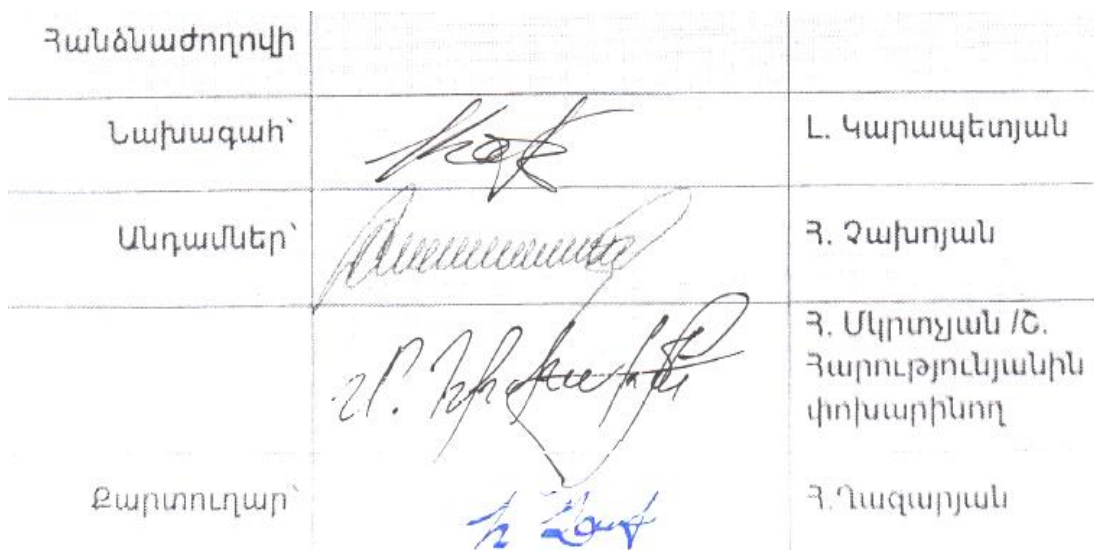 Հանձնաժողովի
Նախագահ՝
Լ. Կարապետյան
Անդամներ՝
Հ. Չախոյան
Հ. Մկրտչյան /Շ.
Հարությունյանին
փոխարինող
Քարտուղար՝
Հ.Ղազարյան